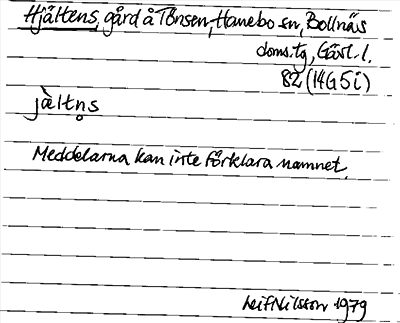 Hjältens, gård å Tönsen, Hanebo sn, Bollnäs
doms.tg, Gävl. l.
82 (14G5i)
jàltn̥s
Meddelarna kan inte förklara namnet.
Leif Nilsson 1979